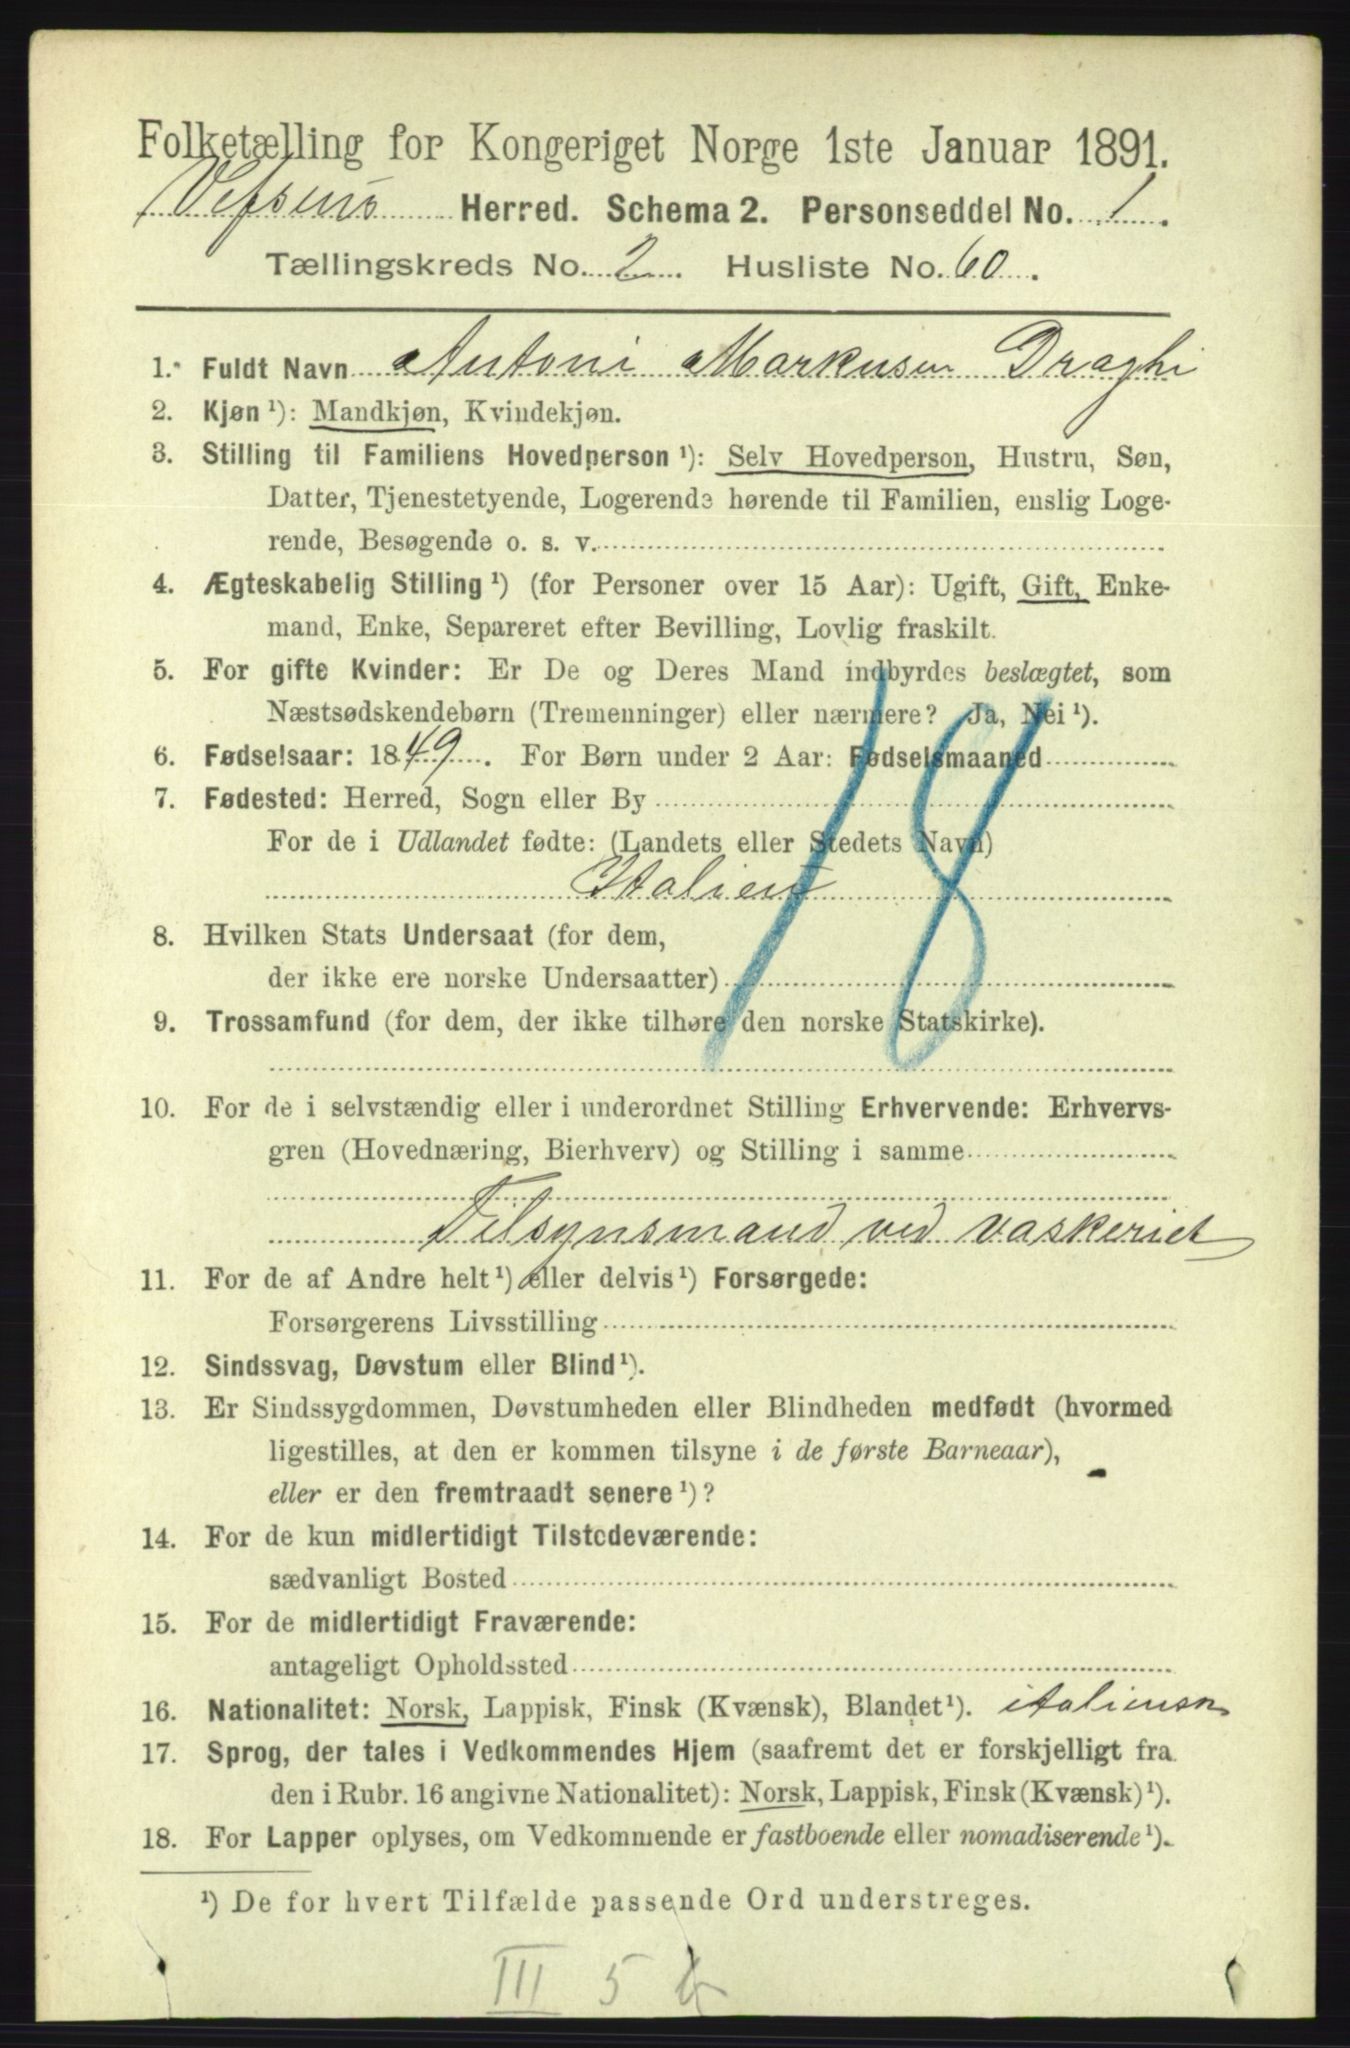 Folketælling for Kongeriget Norge 1ste Januar 1891.
Vefsens Herred. Schema 2. Personseddel No. 1.
Tællingskreds No. 2. Husliste No. 60.
1. Fuldt Navn Antoni Markusen Draghi
2. Kjøn ¹): Mandkjøn, Kvindekjøn.
3. Stilling til Familiens Hovedperson ¹): Selv Hovedperson, Hustru, Søn,
Datter, Tjenestetyende, Logerende hørende til Familien, enslig Loge-
rende, Besøgende o. s. v.
4. Ægteskabelig Stilling ¹) (for Personer over 15 Aar): Ugift, Gift, Enke-
mand, Enke, Separeret efter Bevilling, Lovlig fraskilt.
5. For gifte Kvinder: Er De og Deres Mand indbyrdes beslægtet, som
Næstsødskendebørn (Tremenninger) eller nærmere? Ja, Nei ¹).
6. Fødselsaar: 1849. For Børn under 2 Aar: Fødselsmaaned
7. Fødested: Herred, Sogn eller By
For de i Udlandet fødte: (Landets eller Stedets Navn)
Italien
18
8. Hvilken Stats Undersaat (for dem,
der ikke ere norske Undersaatter)
9. Trossamfund (for dem, der ikke tilhøre den norske Statskirke).
10. For de i selvstændig eller i underordnet Stilling Erhvervende: Erhvervs-
gren (Hovednæring, Bierhverv) og Stilling i samme
Tilsynsmand ved vaskeriet
11. For de af Andre helt ¹) eller delvis ¹) Forsørgede:
Forsørgerens Livsstilling
12. Sindssvag, Døvstum eller Blind ¹).
13. Er Sindssygdommen, Døvstumheden eller Blindheden medfødt (hvormed
ligestilles, at den er kommen tilsyne i de første Barneaar),
eller er den fremtraadt senere ¹)?
14. For de kun midlertidigt Tilstedeværende:
sædvanligt Bosted
15. For de midlertidigt Fraværende:
antageligt Opholdssted
16. Nationalitet: Norsk, Lappisk, Finsk (Kvænsk), Blandet ¹). italiensk
17. Sprog, der tales i Vedkommendes Hjem (saafremt det er forskjelligt fra
den i Rubr. 16 angivne Nationalitet): Norsk, Lappisk, Finsk (Kvænsk) ¹).
18. For Lapper oplyses, om Vedkommende er fastboende eller nomadiserende ¹).
¹) De for hvert Tilfælde passende Ord understreges.
III 5